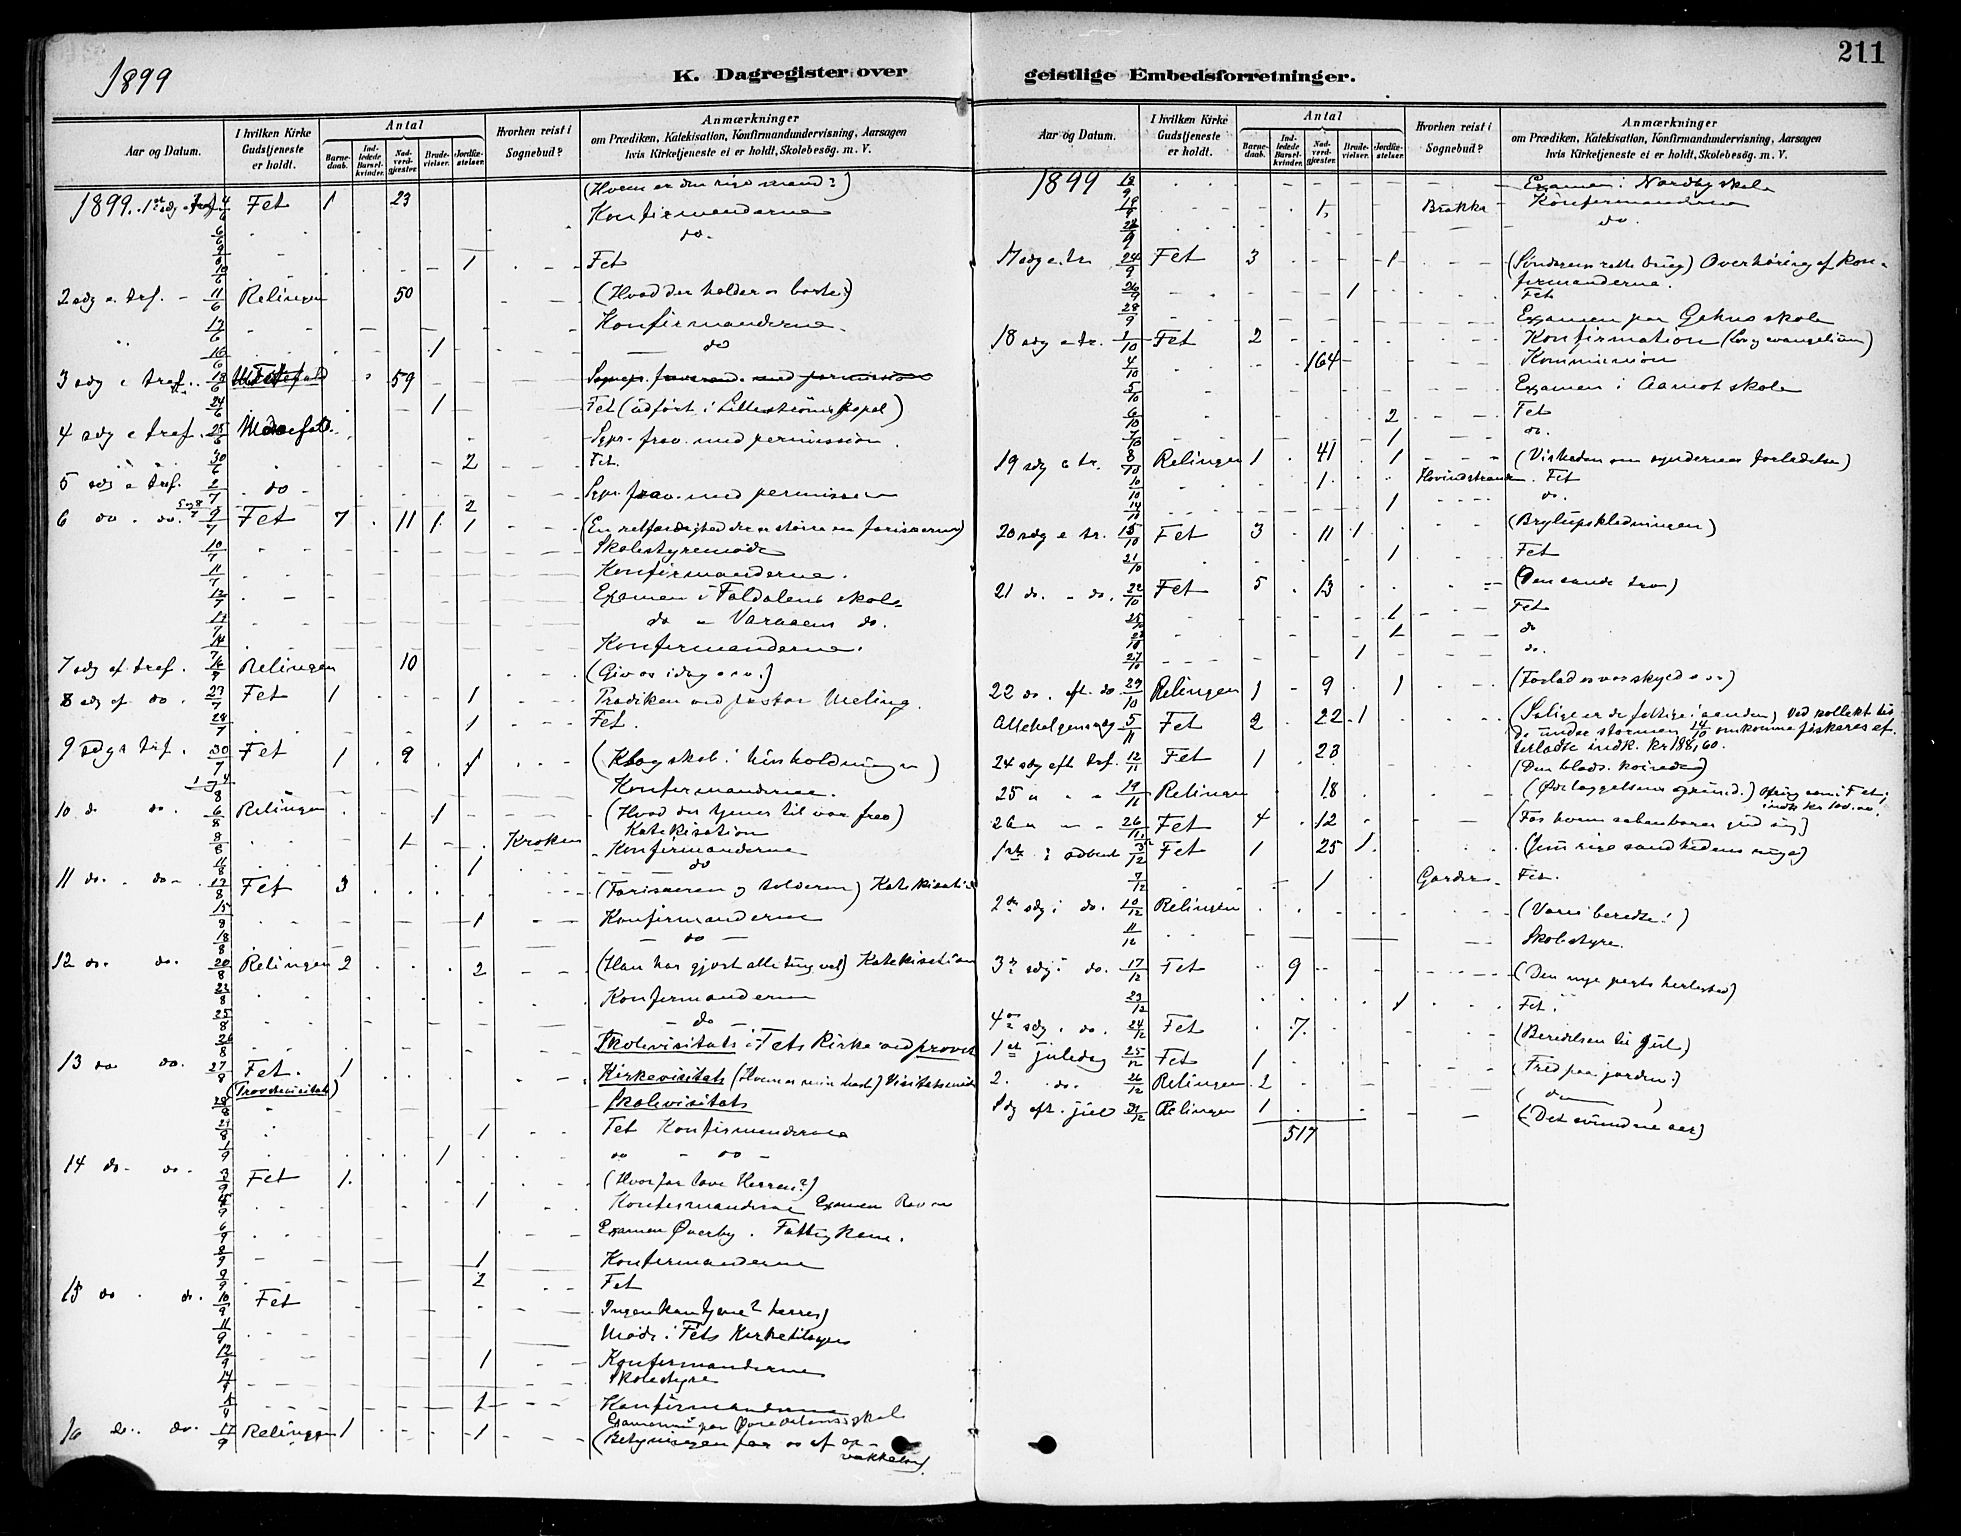 211
1899
K. Dagregister over geistlige Embedsforretninger.
Aar og Datum. I hvilken Kirke Gudstjeneste er holdt. Antal Barnedaab. Indledede Barselkvinder. Nadverdgjæster. Brudevielser. Jordfæstelser. Hvorhen reist i Sognebud? Anmærkninger om Prædiken, Katekisation, Konfirmandundervisning, Aarsagen hvis Kirketjeneste ei er holdt, Skolebesög. m. V.
1899. 1st sdg e. tref 4/6 Fet 1 23 (Hvem er den rige mand?)
Konfirmanderne
6/6 do.
9/6
10/6 1 Fet
2 sdg e. tref. 11/6 Relingen 50 (Hvad der holder o borte)
13/6 Konfirmanderne.
16/6 1 do
3 sdg e tref. 18/6 Fet 59
24/6 1 Fet (udført i Lillestrøms kapel)
4 sdg e tref. 25/6 Sgpr. frav. med permission
30/6 2 Fet.
5 sdg e tref. 2/7 do Sgpr frav. med permission
5 og 8/7 2
6 do. do. 9/7 Fet 7 11 1 1 (En retfærdighed der er større en farisæernes)
10/7 Skolestyremøde
11/7 Konfirmanderne.
12/7 Examen i Faldalens skole
13/7 do do.
14/7 Konfirmanderne.
7 sdg ef. tref. 16/7 Relingen 10 (Giv os idag o.s.v.)
8 sdg ef do. 23/7 Fet 1 1 Prædiken ved pastor Meling.
28/7 1 Fet.
9 sdg e tref. 30/7 Fet 1 9 1 (Klogskab i husholdningen)
1 4/8 Konfirmanderne.
10 do do. 6/8 Relingen 1 (Hvad der tjener til vor fred)
Katekisation
8/8 1 Kroken Konfirmanderne
11/8 1 do
11 do. do. 13/8 Fet 3 (Farisæeren og tolderen) Katekisation
15/8 1 Konfirmanderne
18/8 do
12 do. do. 20/8 Relingen 2 2 (Han har gjort alle ting vel) Katekisation
22/8 Konfirmanderne
25/8 do
26/8 Skolevisitats i Fets Kirke ved provst
13 do do. 27/8 Fet. 1 Kirkevisitats (Hvem er min næste)
(Provstevisitats)
28/8 Skolevisitats
29/8 1 Fet Konfirmanderne
1/9 1 do do
14 do. do. 3/9 Fet 1. (Hvorfor love Herren?)
5/9 1 Konfirmanderne Examen
6/9 Examen Øverby. Fattigkom.
8/9 1 Konfirmanderne
9/9 2 Fet
15 do. do. 10/9 Fet Ingen kan tjene 2 herrer)
11/9 Møde i Fets Kirketilsyn
12/9 1 Konfirmanderne
14/9 Skolestyre
15/9 1 Konfirmanderne
16 do. do. 17/9 Relingen 1 1 (Betydningen for os af opvækkelsen)
Aar og Datum. I hvilken Kirke Gudstjeneste er holdt. Antal Barnedaab. Indledede Barselkvinder. Nadverdgjæster. Brudevielser. Jordfæstelser. Hvorhen reist i Sognebud? Anmærkninger om Prædiken, Katekisation, Konfirmandundervisning, Aarsagen hvis Kirketjeneste ei er holdt, Skolebesög. m. V.
1899 18/9 Examen i Nordby skole
19/9 1. Brakke Konfirmanderne
22/9 do.
17 sdg e. tr 24/9 Fet 3 1 (Søndagens rette brug) Overhøring af konfirmanderne.
26/9 1 Fet
28/9 Examen paa Gehus skole
18 sdg e tr. 1/10 Fet 2 Konfirmation
4/10 164 Kommunion
5/10 Examen i Aarnes skole
6/10 2 Fet
7/10 1 do.
19 sdg e tr. 8/10 Relingen 1 41 1 (Visheden om syndernes forladelse)
10/10 1 Hovindstranden. Fet
14/10 1 do.
20 sdg e tr. 15/10 Fet 3 11 1 (Bryllupsklædningen)
21/10 1 Fet
21 do. do. 22/10 Fet 5 13 (Den sande tro)
25/10 1 Fet
1 do
27/10 1 do.
22 do. eft. do. 29/10 Relingen 1 9 1 (Forlad os vor skyld o.s.v)
Allehelgensdag 5/11 Fet 2 22 1 (Salige er de fattige i aanden) Ved kollekt til de under stormen 14/10 omkomne fiskeres efterladte indk. kr 188,60.
24 sdg eft tref. 12/11 Fet 1 23
25 19/11 Relingen 18 (Ødelæggelsens
26 26/11 Fet 4 12 (For hvem aabenbarer gud sig)
1ste i advent 3/12 Fet 1 25 1. (Jesu rige sandhedens rige)
7/12 1 Garder Fet.
2den sdg i do. 10/12 Relingen (Vær beredte!)
11/12 Skolestyre.
3die sdg i do. 17/12 Fet 9 (Den nye
23/12 1 Fet.
4de sdg i do. 24/12 Fet 7. (Beredelsen til Jul)
1ste juledag 25/12 Fet 1 (Fred paa jorden.)
2. do. 26/12 Relingen 2 ( do )
Sdg eft. jul 31/12 Relingen 1 (Det svundne aar)
517